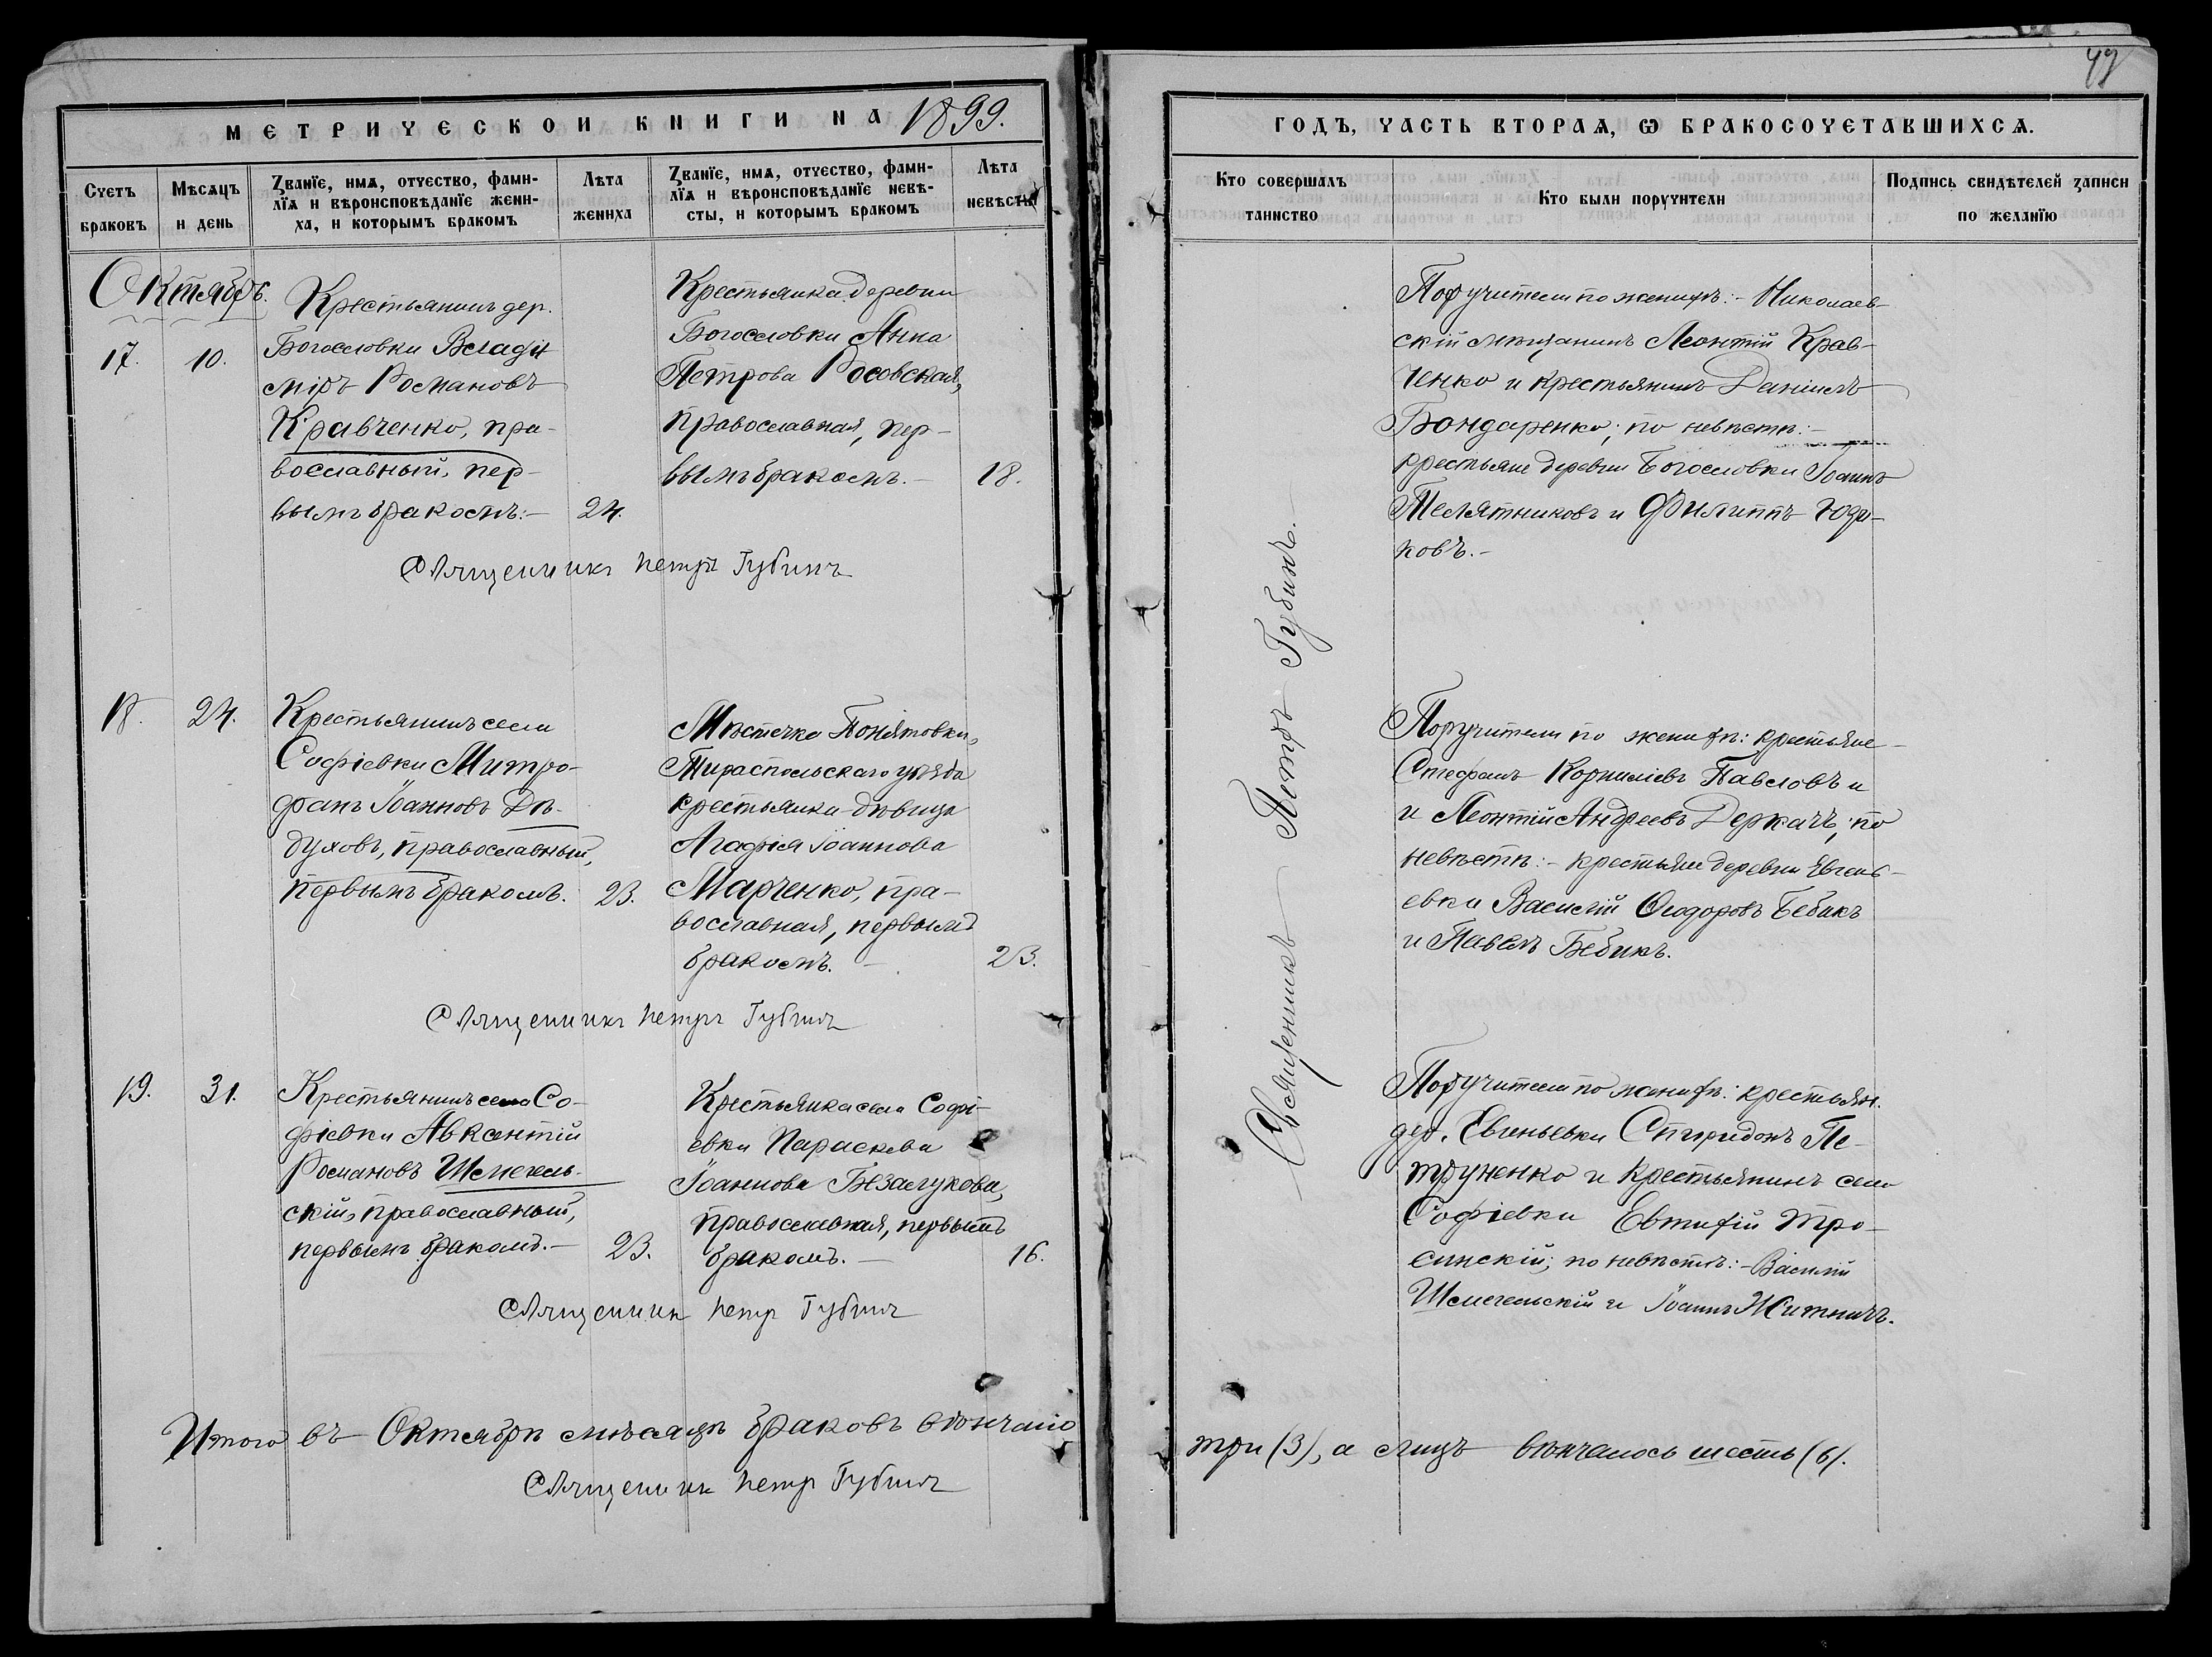 49
МЕТРИЧЕСКОЙ КНИГИ НА 1899.
ГОДЪ, ЧАСТЬ ВТОРАѦ, Ѡ БРАКОСОЧЕТАВШИХСѦ.
Счетъ браковъ
Мѣсѧцъ и день
Званїе, имѧ, отчество, фами-
лїѧ и вѣроисповѣданїе жени-
ха, и которымъ бракомъ
Лѣта жениха
Званїе, имѧ, отчество, фами-
лїѧ и вѣроисповѣданїе невѣ-
сты, и которымъ бракомъ
Лѣта невѣсты
Кто совершалъ таинство
Кто были поручители
Подпись свидѣтелей записи по желанїю
Октябрь.
17.
10.
Крестьянинъ дер.
Богословки Влади
міръ Романовъ
Кравченко, пра-
вославный, пер-
вымъ бракомъ:-
24.
Крестьянка деревни
Богословки Анна
Петрова Росовская,
православная, пер-
вымъ бракомъ.-
18.
Поручители по женихѣ:- Николаев-
скій мѣщанинъ Леонтій Крав-
ченко и крестьянинъ Даніилъ
Бондаренко; по невѣстѣ:-
крестьяне деревни Богословки Іоаннъ
Телятниковъ и Филиппъ
ковъ.-
Священникъ Петръ Губинъ
18.
24.
Крестьянинъ села
Софіевки Митро-
фанъ Іоанновъ Дѣ-
духовъ, православный,
первымъ бракомъ.
23.
Мѣстечка Понятовки,
Тираспольскаго уѣзда
крестьянка-дѣвица
Агафія Іоаннова
Марченко, пра-
вославная, первымъ
бракомъ.-
23.
Поручители по женихѣ: крестьяне
Стефанъ Корниліевъ Павловъ и
и Леонтій Андреевъ Деркачъ, по
невѣстѣ:- крестьяне деревни Евгень-
евки Василій Ѳеодоровъ Бебикъ
и Павелъ Бебикъ.
Священникъ Петръ Губинъ
19.
31.
Крестьянинъ села Со-
фіевки Авксентій
Романовъ Шмегель-
скій, православный,
первымъ бракомъ.-
23.
Крестьянка села Софі-
евки Параскева
Іоаннова Безлугкова,
православная, первымъ
бракомъ.-
16.
Поручители по женихѣ: крестьян.
дер. Евгеньевки Спиридонъ Пе-
труненко и крестьянинъ села
Софіевки Евтихій Тро-
синскій; по невѣстѣ:- Василій
Шмегельскій и Іоаннъ Житничъ.
Священникъ Петръ Губинъ
Священникъ Петръ Губинъ.-
Итого въ Октябрѣ мѣсяцѣ браковъ вѣнчано
три (3), а лицъ вѣнчалось шесть (6).
Священникъ Петръ Губинъ